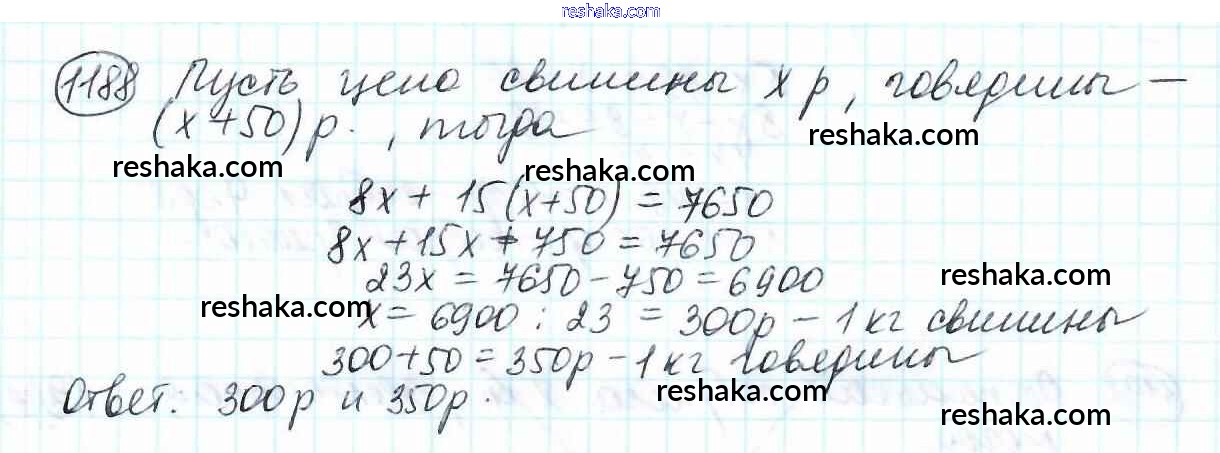 reshaka.com
1188 Пусть цена свинины х р, говядины —
(х+50) р. , тогда
reshaka.com reshaka.com reshaka.com
8х + 15(х+50) = 7650
8х+15х+750 = 7650
23х = 7650-750=6900 reshaka.com
reshaka.com х= 6900 : 23 = 300р - 1 кг свинины
300+50 = 350р - 1 кг говядины
Ответ: 300 р и 350р. reshaka.com reshaka.com